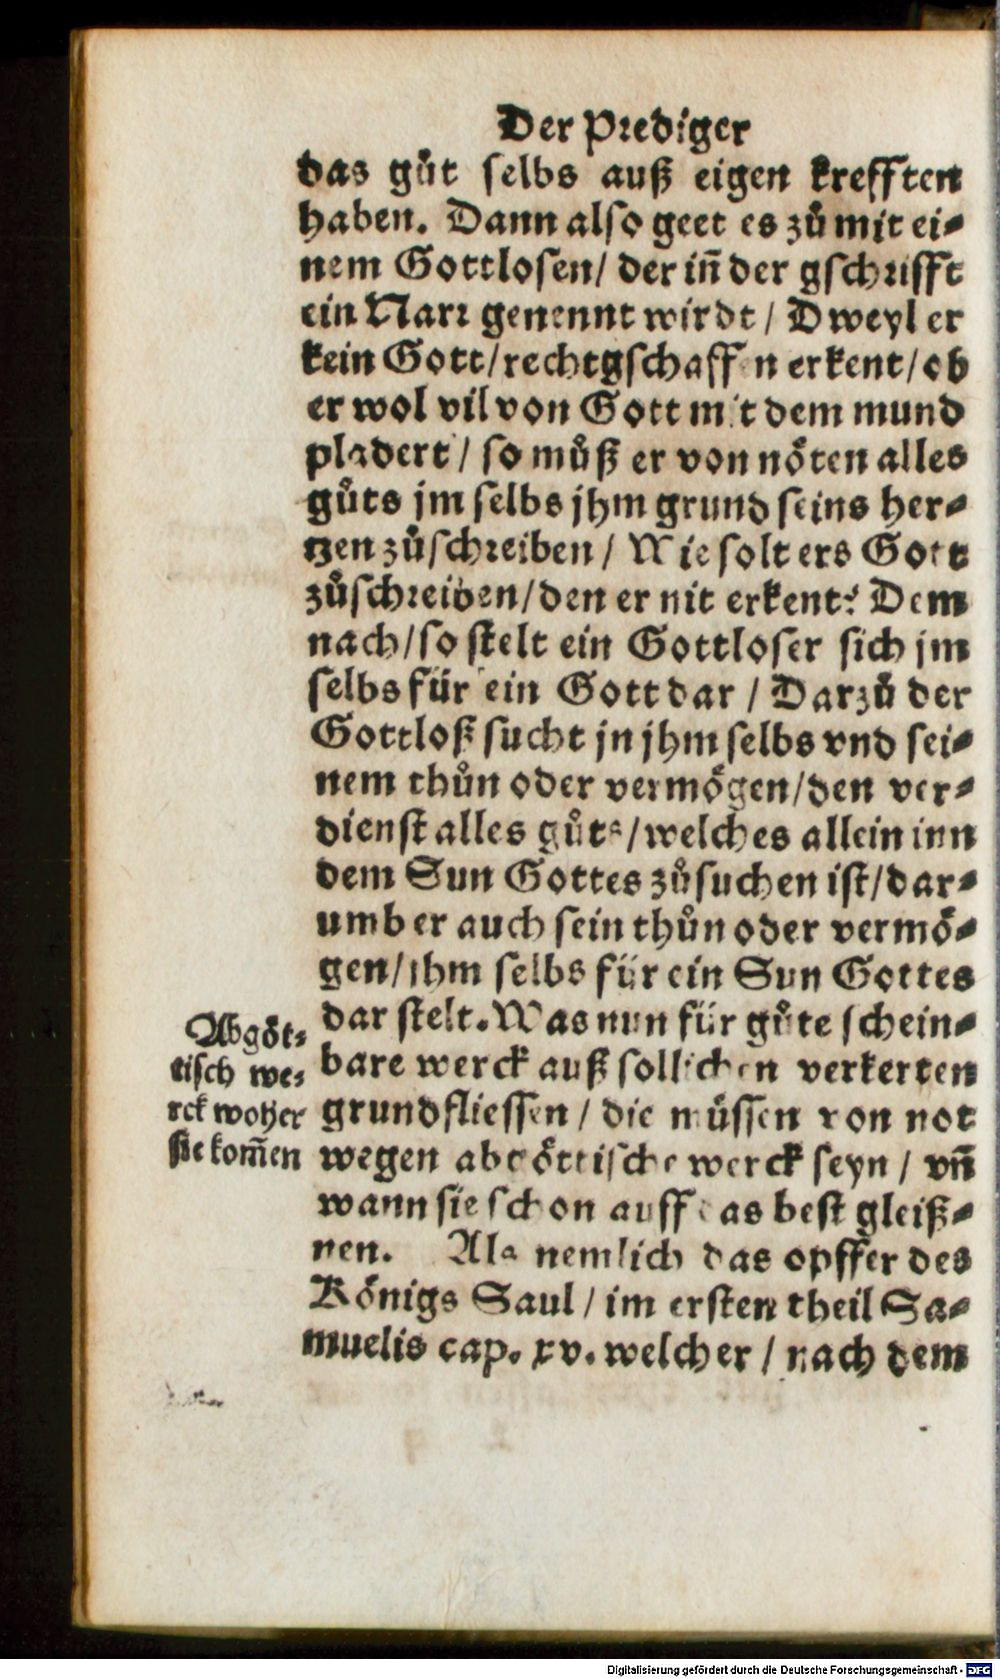 Der Prediger
das gůt selbs auß eigen krefften
haben. Dann also geet es zů mit ei-
nem Gottlosen/ der in̄ der gschrifft
ein Narr genennt wirdt / Dweyl er
kein Gott/ rechtgschaffen erkent/ ob
er wol vil von Gott mit dem mund
pladert / so můß er von nöten alles
gůts jm selbs jhm grund seins her-
tzen zůschreiben / Wie solt ers Gott
zůschreiben/ den er nit erkent? Dem
nach/ so stelt ein Gottloser sich jm
selbs für ein Gott dar / Darzů der
Gottloß sucht jn jhm selbs vnd sei-
nem thůn oder vermögen/ den ver-
dienst alles gůts/ welches allein inn
dem Sun Gottes zůsuchen ist/ dar-
umb er auch sein thůn oder vermö-
gen/ ihm selbs für ein Sun Gottes
dar stelt. Was nun für gůte schein-
bare werck auß sollichen verkerten
grund fliessen / die müssen von not
wegen abgöttische werck seyn / vn̄
wann sie schon auff das best gleiß-
nen. Als nemlich das opffer des
Königs Saul / im ersten theil Sa-
muelis cap. xv. welcher / nach dem
Abgöt-
tisch we-
rck woher
sie kom̄en
Digitalisierung gefördert durch die Deutsche Forschungsgemeinschaft - DFG